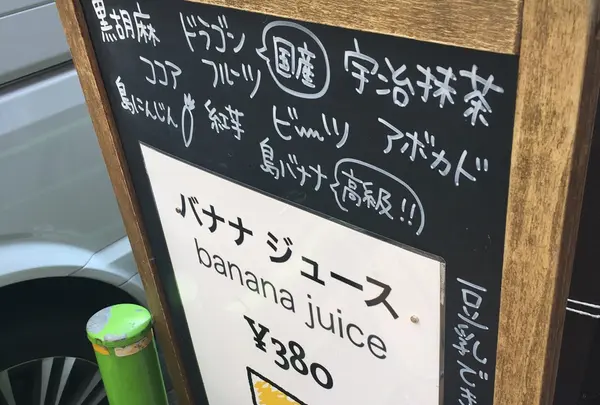 黒胡麻 ドラゴンフルーツ 国産 宇治抹茶
ココア
島にんじん 紅芋 ビーツ アボカド
島バナナ 高級!!
バナナ ジュース
banana juice
¥380